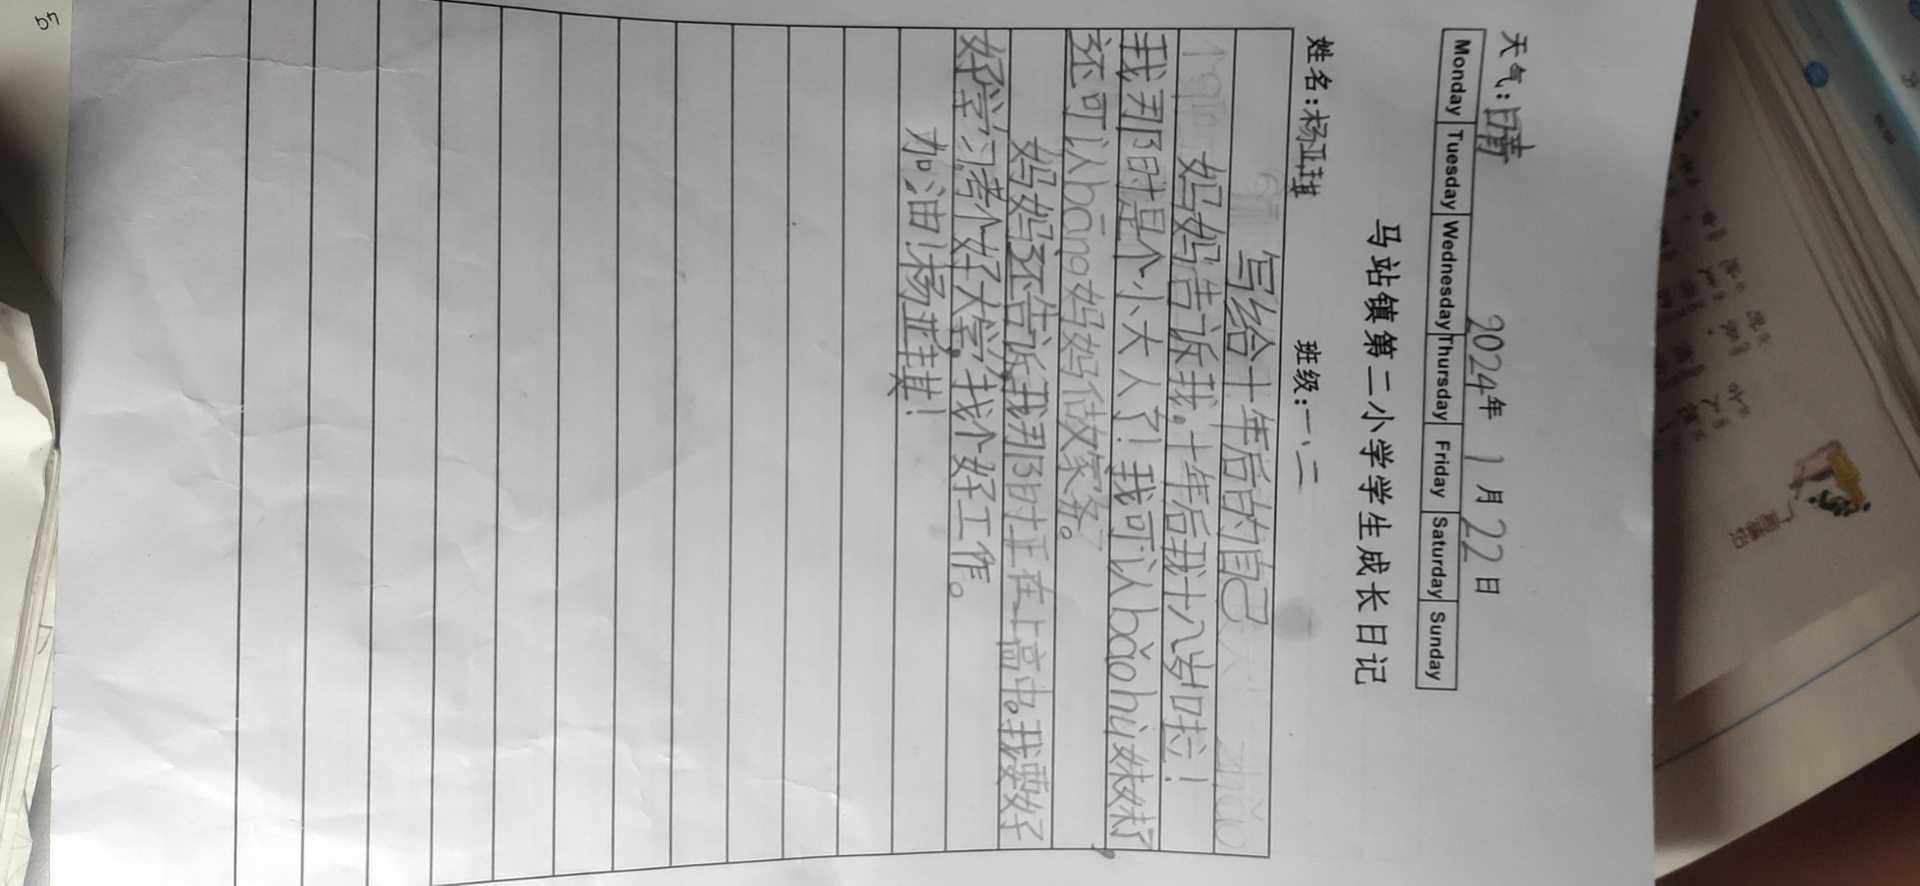 2024年 1月22日
天气:晴
Monday Tuesday Wednesday Thursday Friday Saturday Sunday
马站镇第二小学学生成长日记
姓名:杨亚琪 班级:一、二
写给十年后的自己
妈妈告诉我。十年后我十八岁啦!
我那时是个小大人了!我可认bǎohù妹妹了,
还可认bāng妈妈做家务了。
妈妈还告诉我那时正在上高中。我要好
好学习考个好大学,找个好工作。
加油!杨亚琪!